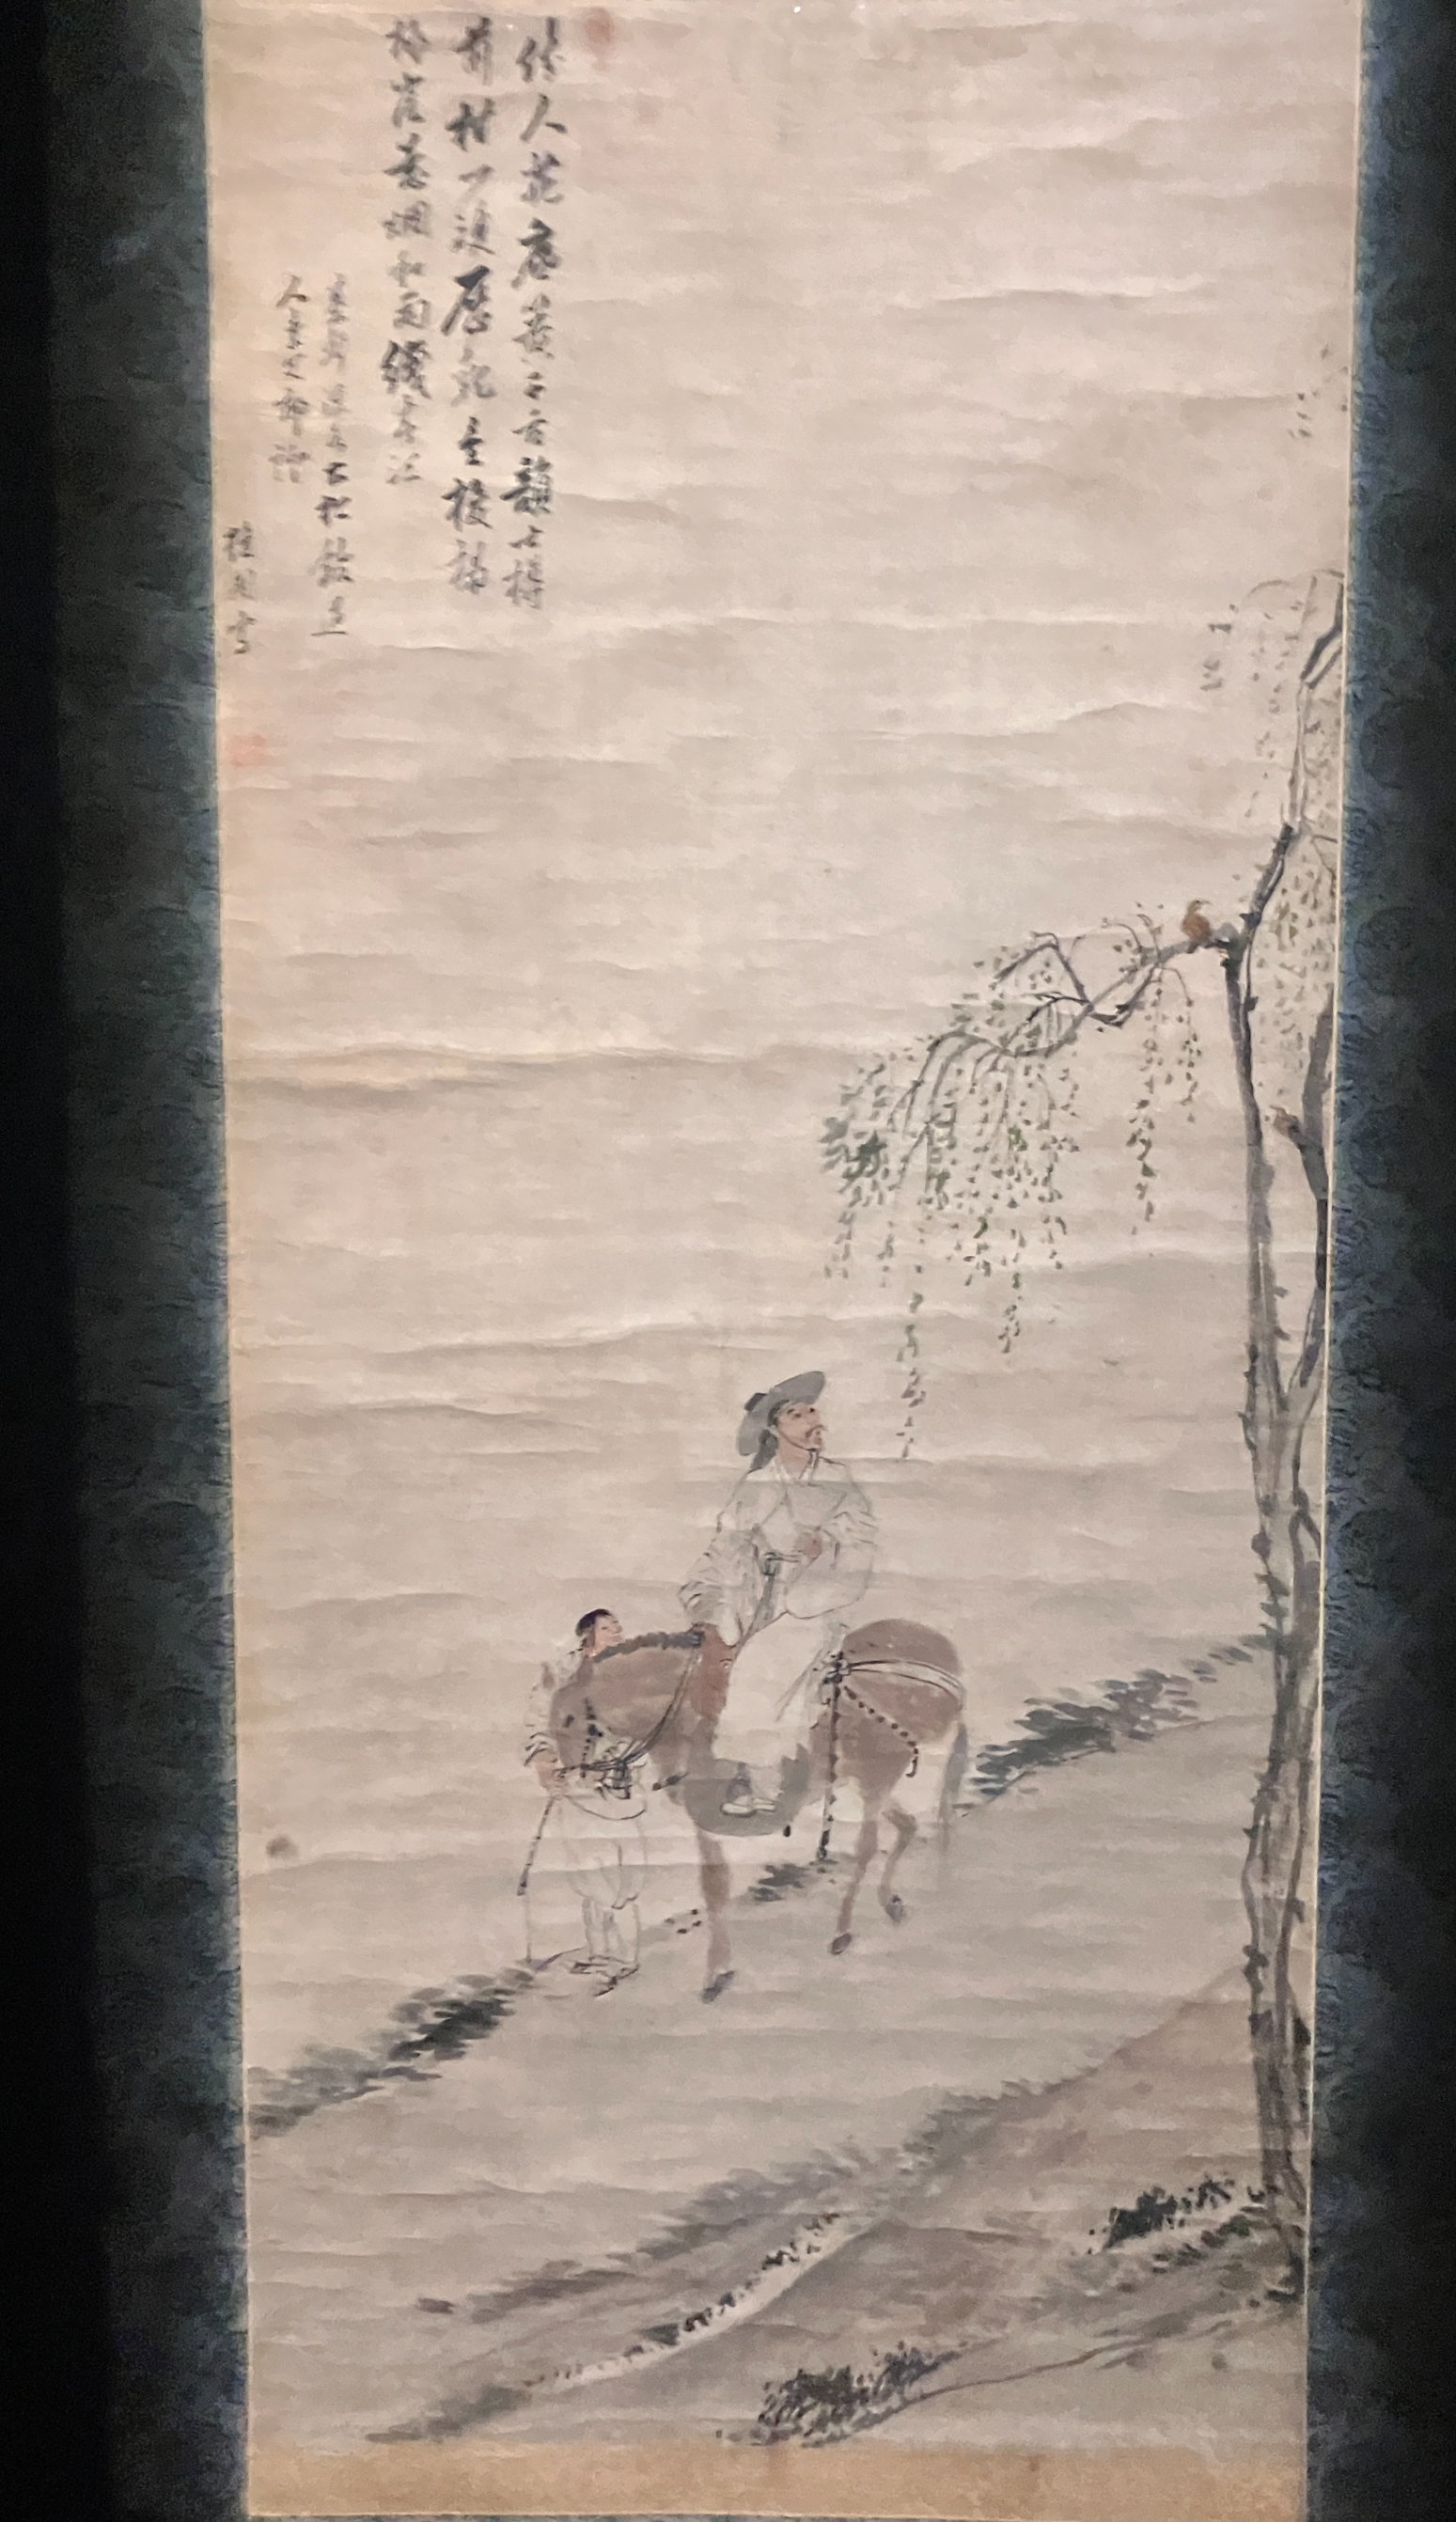 佳人花底簧千舌韻士樽
前柑一雙歷亂金梭楊
柳崖惹烟和雨織春江
碁聲流水古松館道
人李文郁證
檀園寫